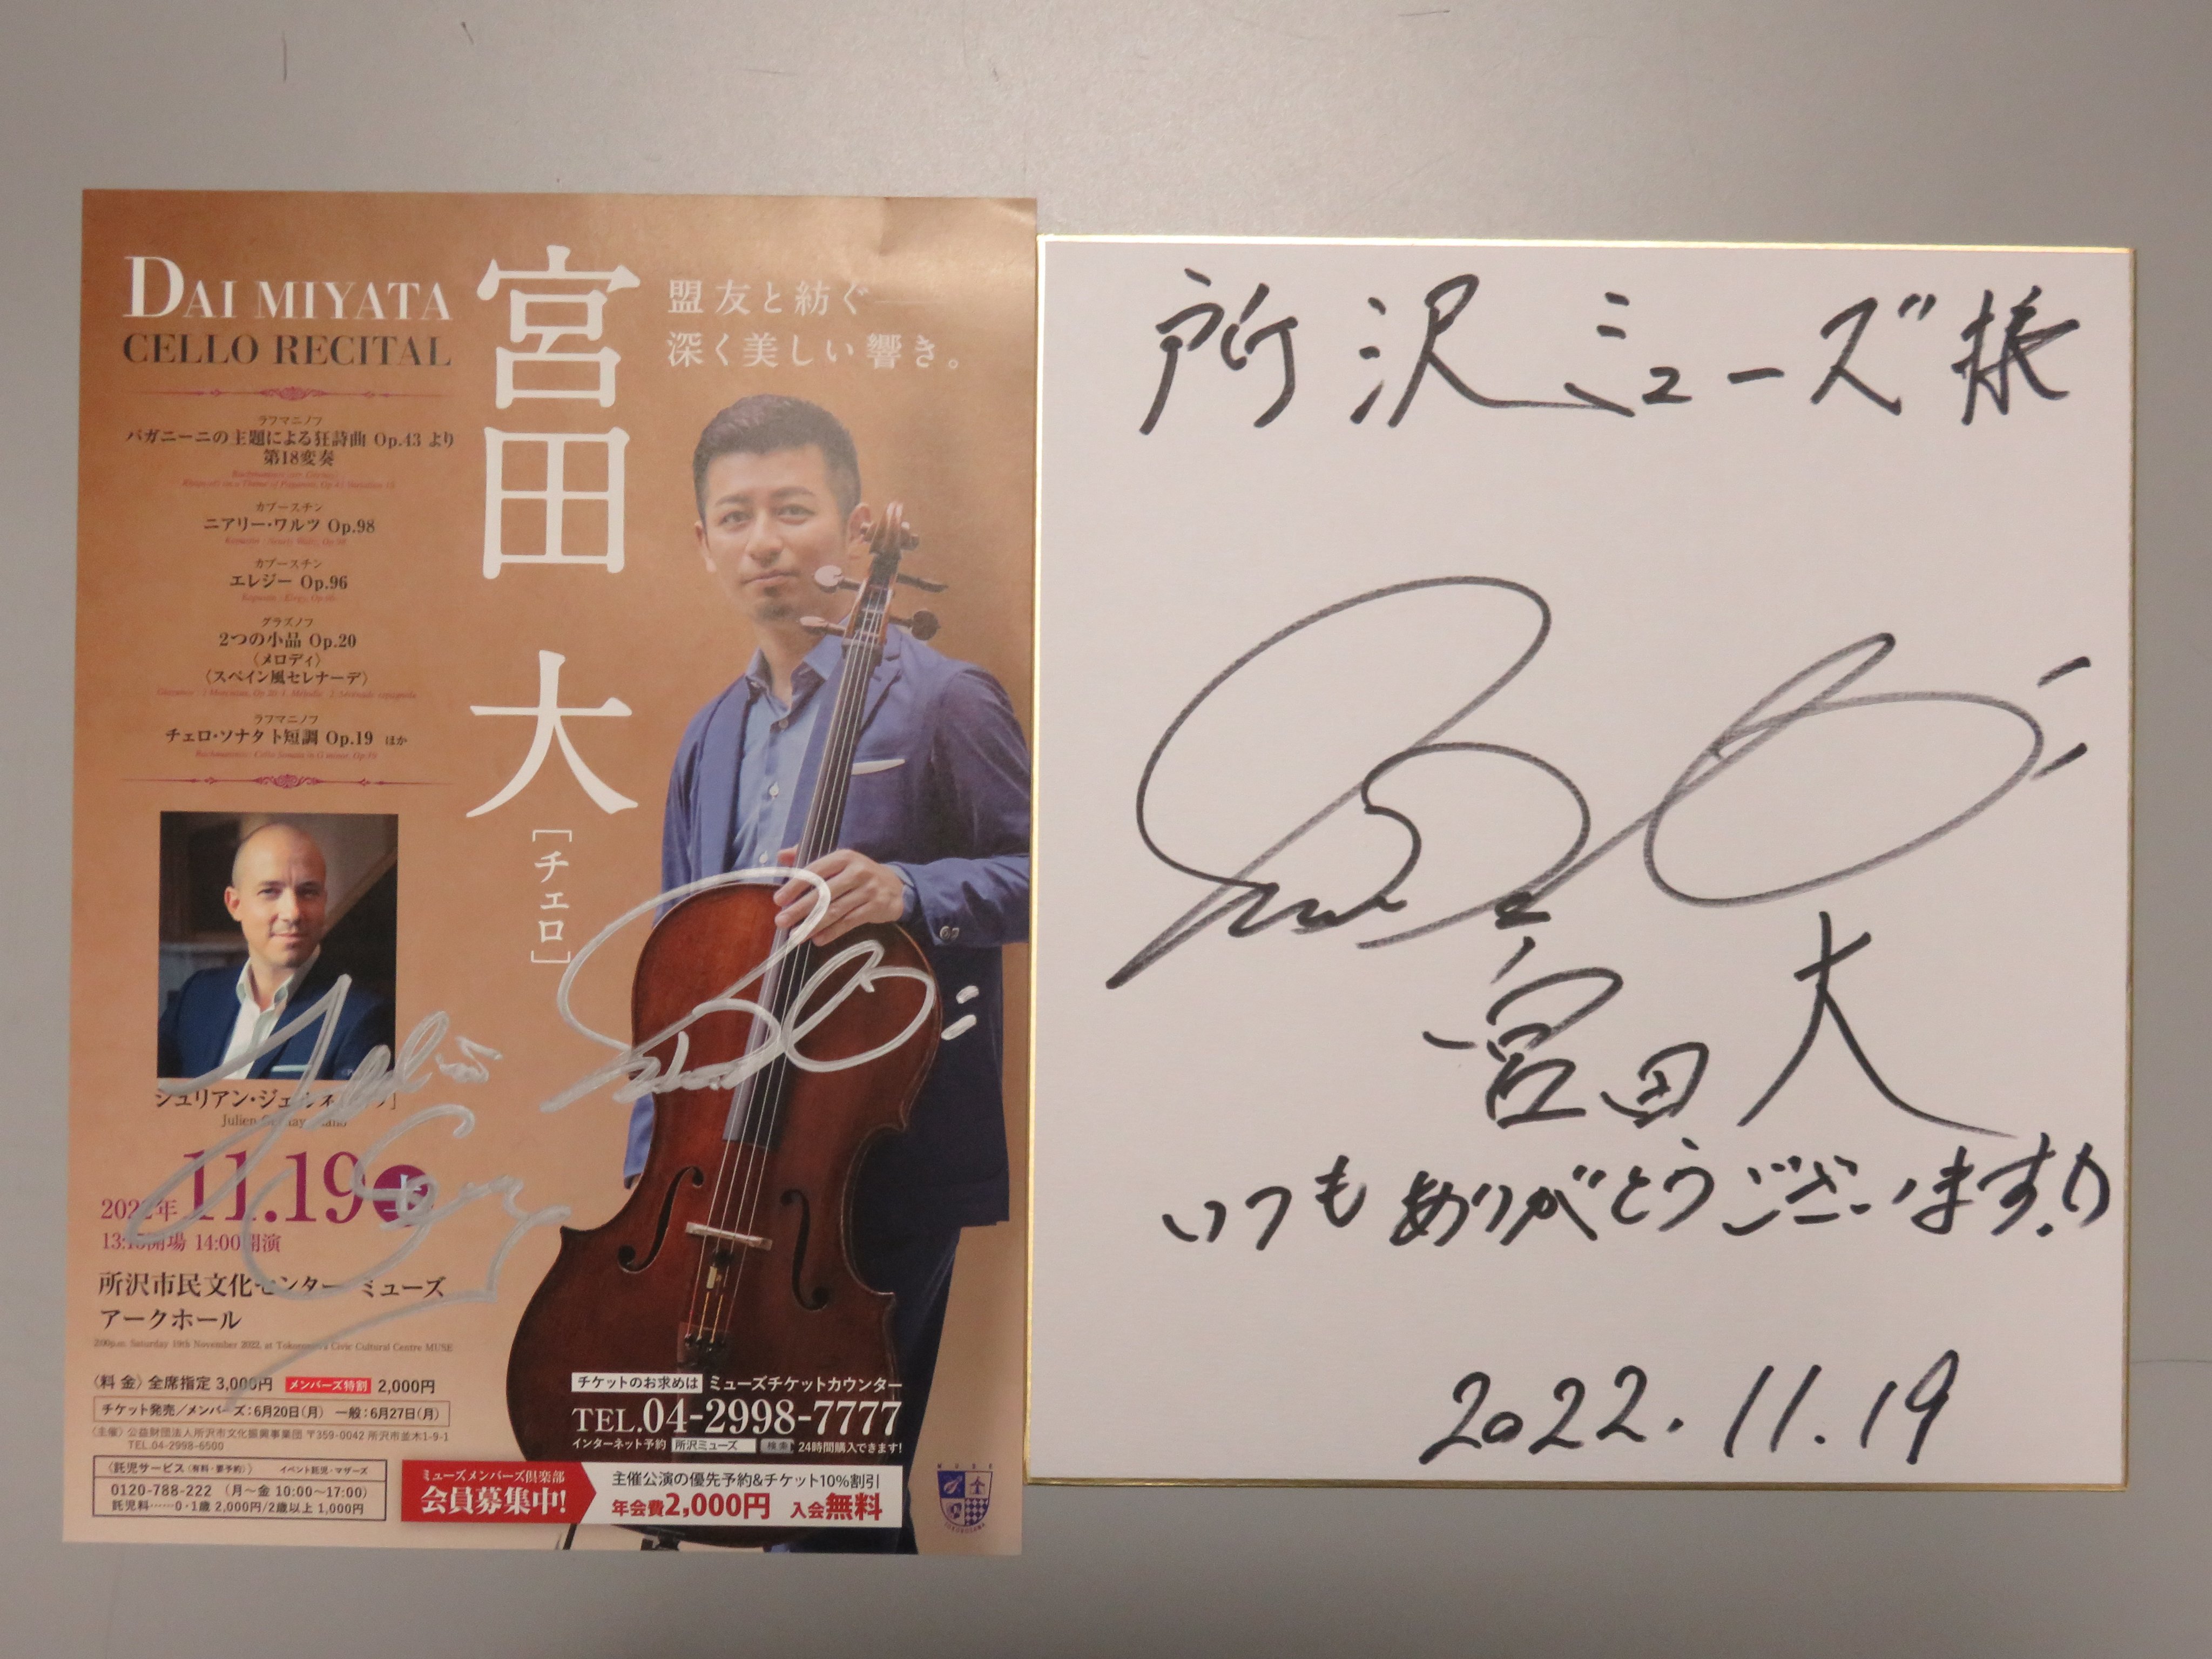 DAI MIYATA
CELLO RECITAL
宮田 大
[チェロ]
盟友と紡ぐ——
深く美しい響き。
ラフマニノフ
パガニーニの主題による狂詩曲 Op.43 より
第18変奏
カプースチン
ニアリー・ワルツ Op.98
カプースチン
エレジー Op.96
グラズノフ
2つの小品 Op.20
〈メロディ〉
〈スペイン風セレナーデ〉
ラフマニノフ
チェロ・ソナタ ト短調 Op.19 ほか
ジュリアン・ジェルネ
Julien
2022年 11.19 土
13:15開場 14:00開演
所沢市民文化センター ミューズ
アークホール
2:00p.m. Saturday 19th November 2022, at Tokorozawa Civic Cultural Centre MUSE
〈料 金〉全席指定 3,000円 メンバーズ特割 2,000円
チケット発売/メンバーズ:6月20日(月) 一般:6月27日(月)
〈主催〉公益財団法人所沢市文化振興事業団 〒359-0042 所沢市並木1-9-1
TEL.04-2998-6500
〈託児サービス(有料・要予約)〉 イベント託児・マザーズ
0120-788-222 (月〜金 10:00〜17:00)
託児料……0・1歳 2,000円/2歳以上 1,000円
チケットのお求めは ミューズチケットカウンター
TEL.04-2998-7777
インターネット予約 所沢ミューズ 検索 24時間購入できます!
ミューズメンバーズ倶楽部
会員募集中!
主催公演の優先予約&チケット10%割引
年会費2,000円 入会無料
MUSE
TOKOROZAWA
所沢ミューズ様
宮田 大
いつもありがとうございます!!
2022.11.19